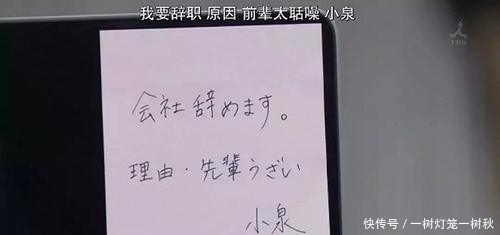 我要辞职 原因 前辈太聒噪 小泉
TBS
会社辞めます。
理由・先輩うざい
小泉
快传号/一树灯笼一树秋